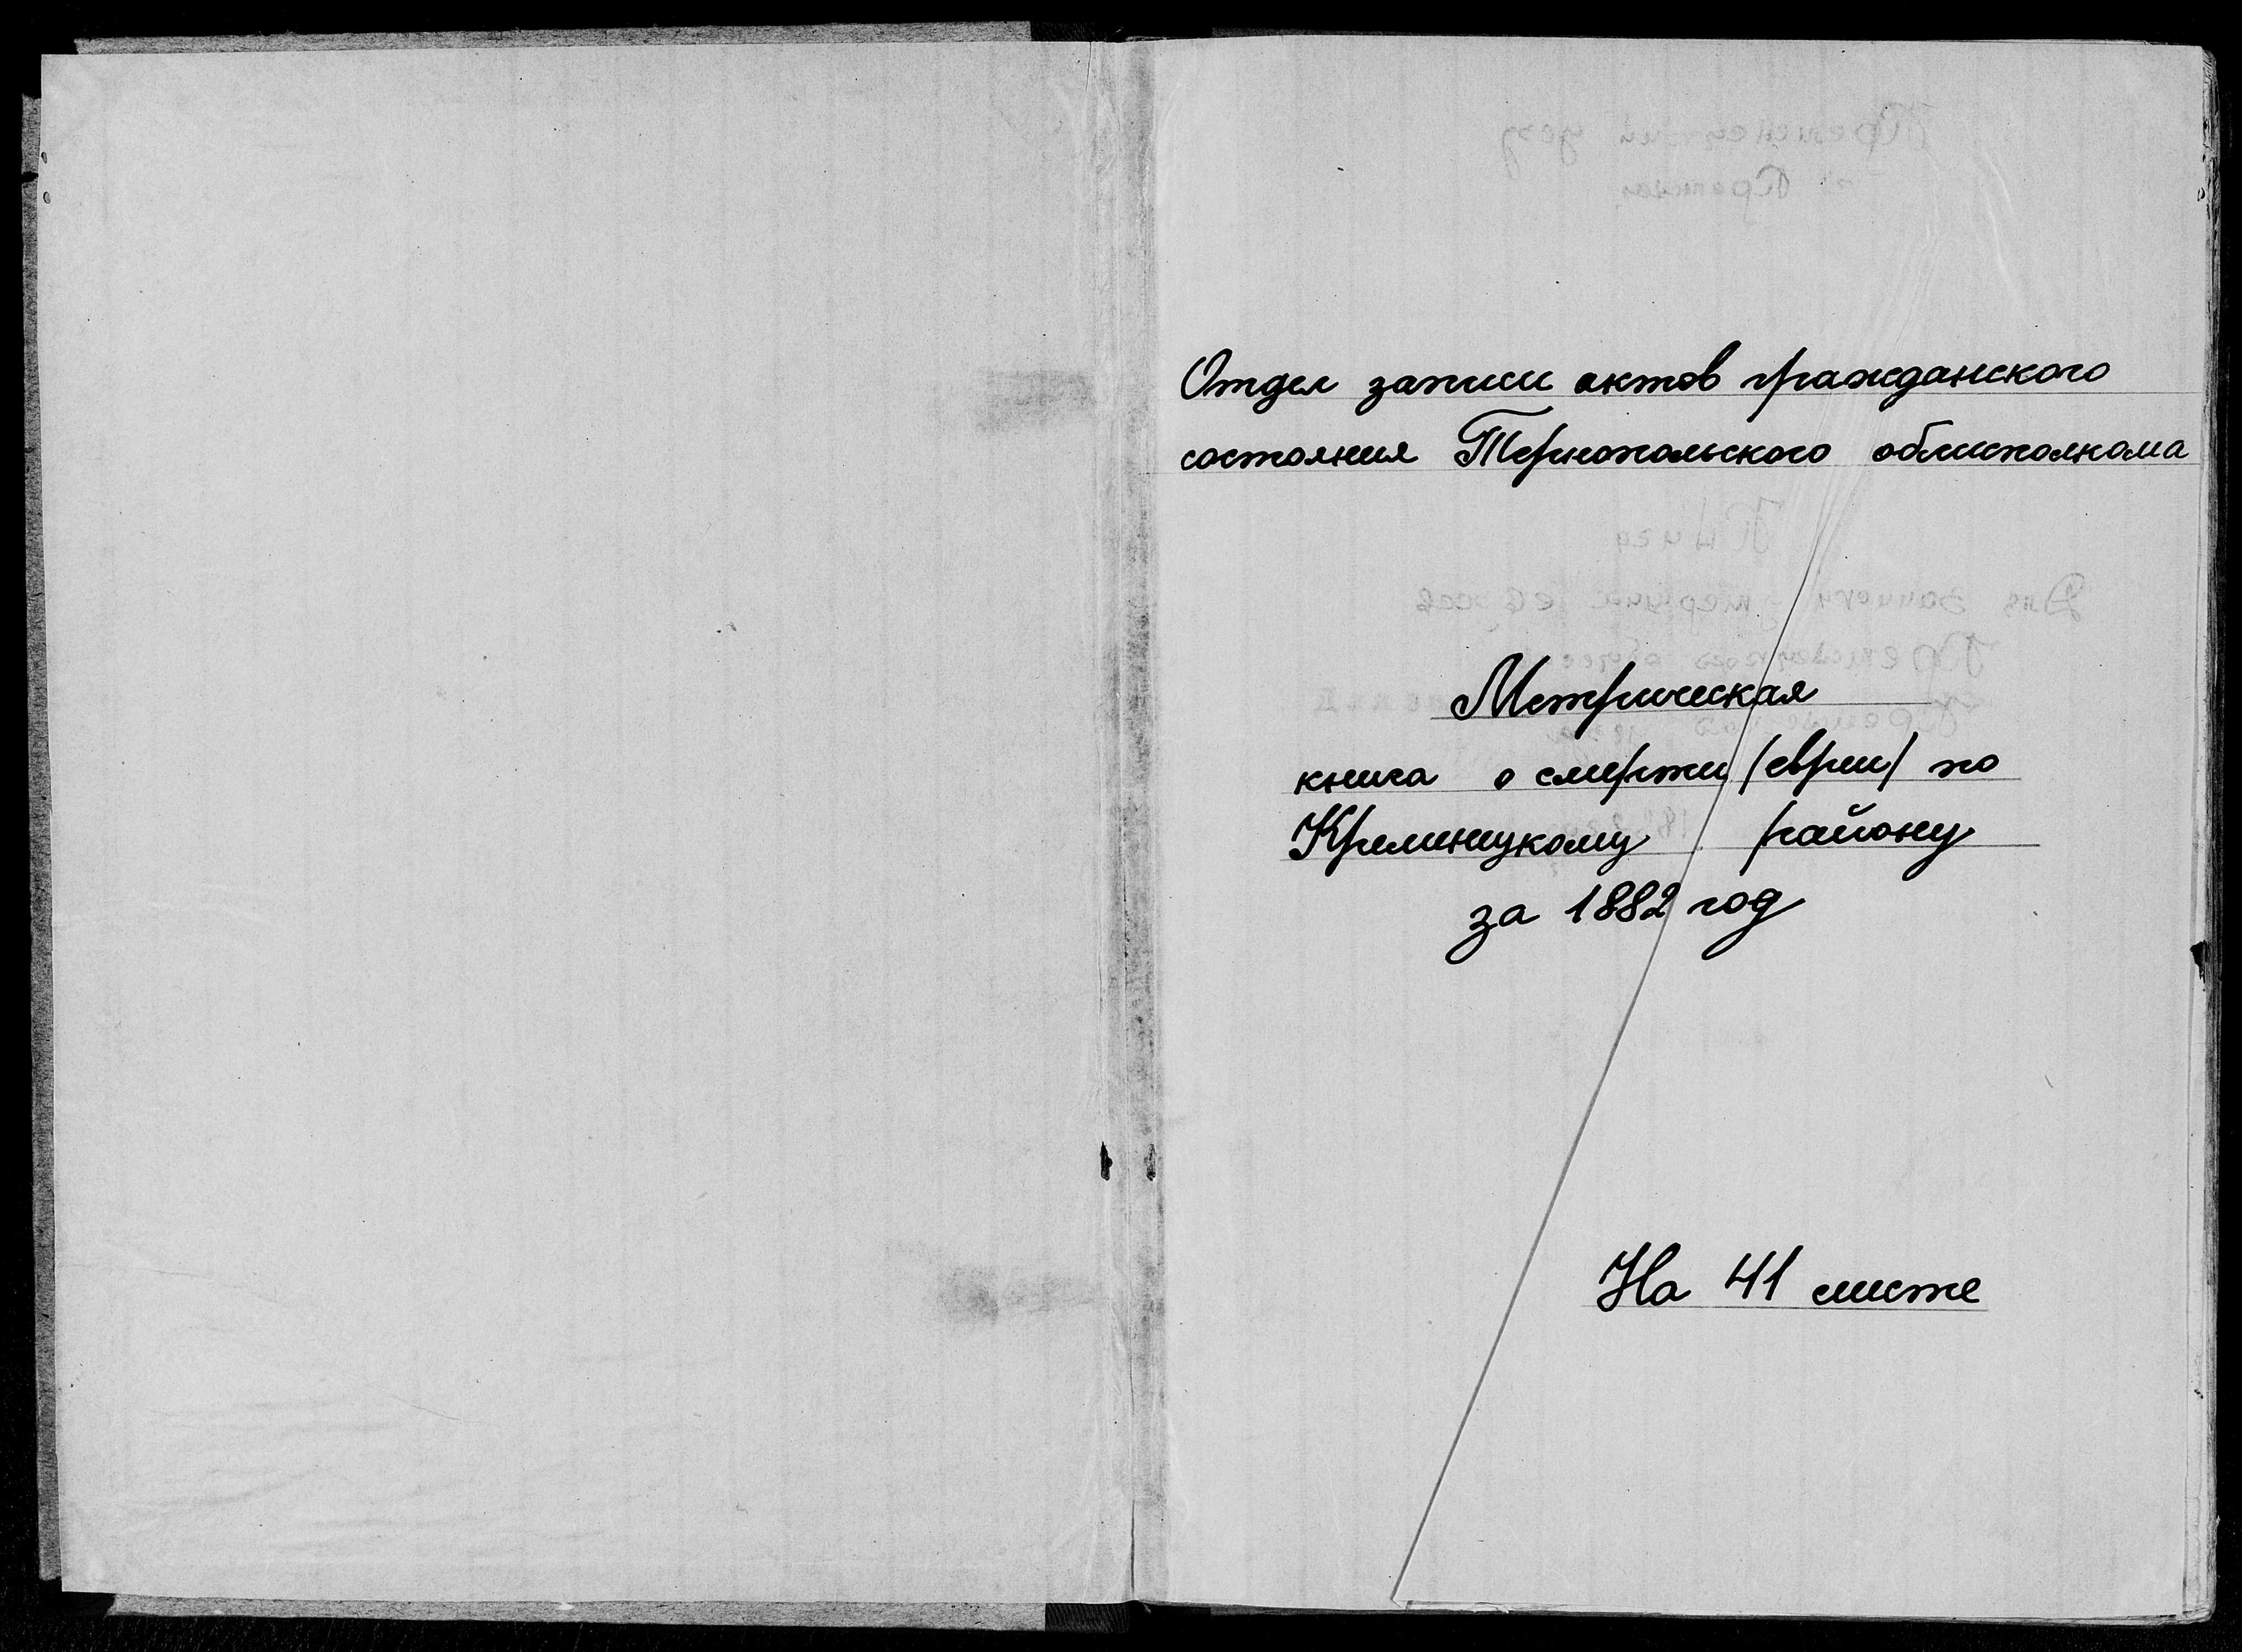 Отдел записи актов гражданского
состояния Тернопольского облисполкома
Метрическая
книга о смерти /евреи/ по
Кременецкому району
за 1882 год
На 41 листе